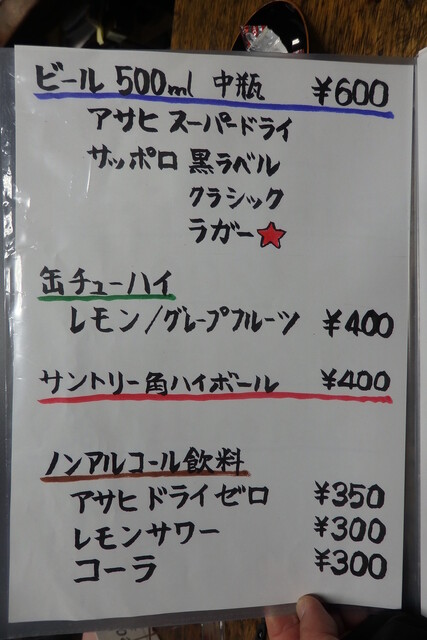 ビール 500ml 中瓶 ¥600
アサヒ スーパードライ
サッポロ 黒ラベル
クラシック
ラガー★
缶チューハイ
レモン/グレープフルーツ ¥400
サントリー角ハイボール ¥400
ノンアルコール飲料
アサヒ ドライゼロ ¥350
レモンサワー ¥300
コーラ ¥300